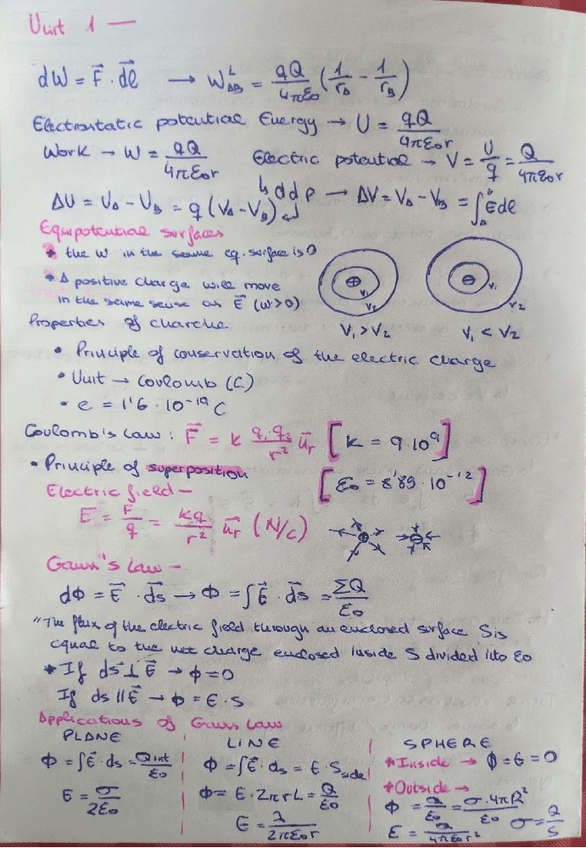 Unit 1 —
dW = F⃗ · dl⃗ → W_AB^L = qQ/4πε₀ (1/r_A - 1/r_B)
Electrostatic potential Energy → U = qQ/4πε₀r
Work → W = qQ/4πε₀r Electric potential → V = U/q = Q/4πε₀r
↳ ddp → ΔV = V_A - V_B = ∫_A^B E⃗ dl
ΔU = U_A - U_B = q (V_A - V_B)
Equipotential surfaces
* the W in the same eq. surface is 0
* A positive charge will move
in the same sense as E⃗ (W>0)
V₁ V₂ V₁ V₂
V₁ > V₂ V₁ < V₂
Properties of charche
• Principle of conservation of the electric charge
• Unit → Coulomb (C)
• e = 1'6 · 10⁻¹⁹ C
Coulomb's Law : F⃗ = k q₁·q₂/r² u⃗r [k = 9·10⁹]
• Principle of superposition [ε₀ = 8'85 · 10⁻¹²]
Electric field —
E⃗ = F⃗/q = kq/r² u⃗r (N/C)
Gauss's Law —
dΦ = E⃗ · ds⃗ → Φ = ∫E⃗ · ds⃗ = ΣQ/ε₀
"The flux of the electric field through an enclosed surface S is
equal to the net charge enclosed inside S divided into ε₀
* If ds⃗ ⊥ E⃗ → Φ = 0
If ds ∥ E⃗ → Φ = E · S
Applications of Gauss Law
PLANE
Φ = ∫E⃗ · ds = Qint/ε₀
E = σ/2ε₀
LINE
Φ = ∫E⃗ · ds = E · S_side
Φ = E · 2πrL = Q/ε₀
E = λ/2πε₀r
SPHERE
* Inside → Φ = E = 0
* Outside →
Φ = Q/ε₀ = σ · 4πR²/ε₀ σ = Q/S
E = Q/4πε₀r²